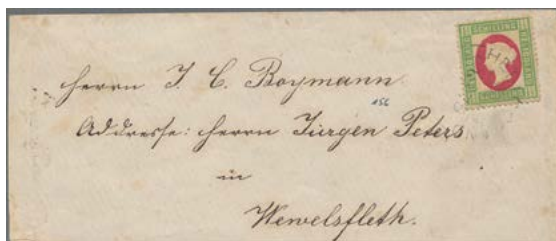 SCHILLING
Herrn J. C. Boymann
156
Addresse: Herrn Jürgen Peters
in
Wewelsfleth.